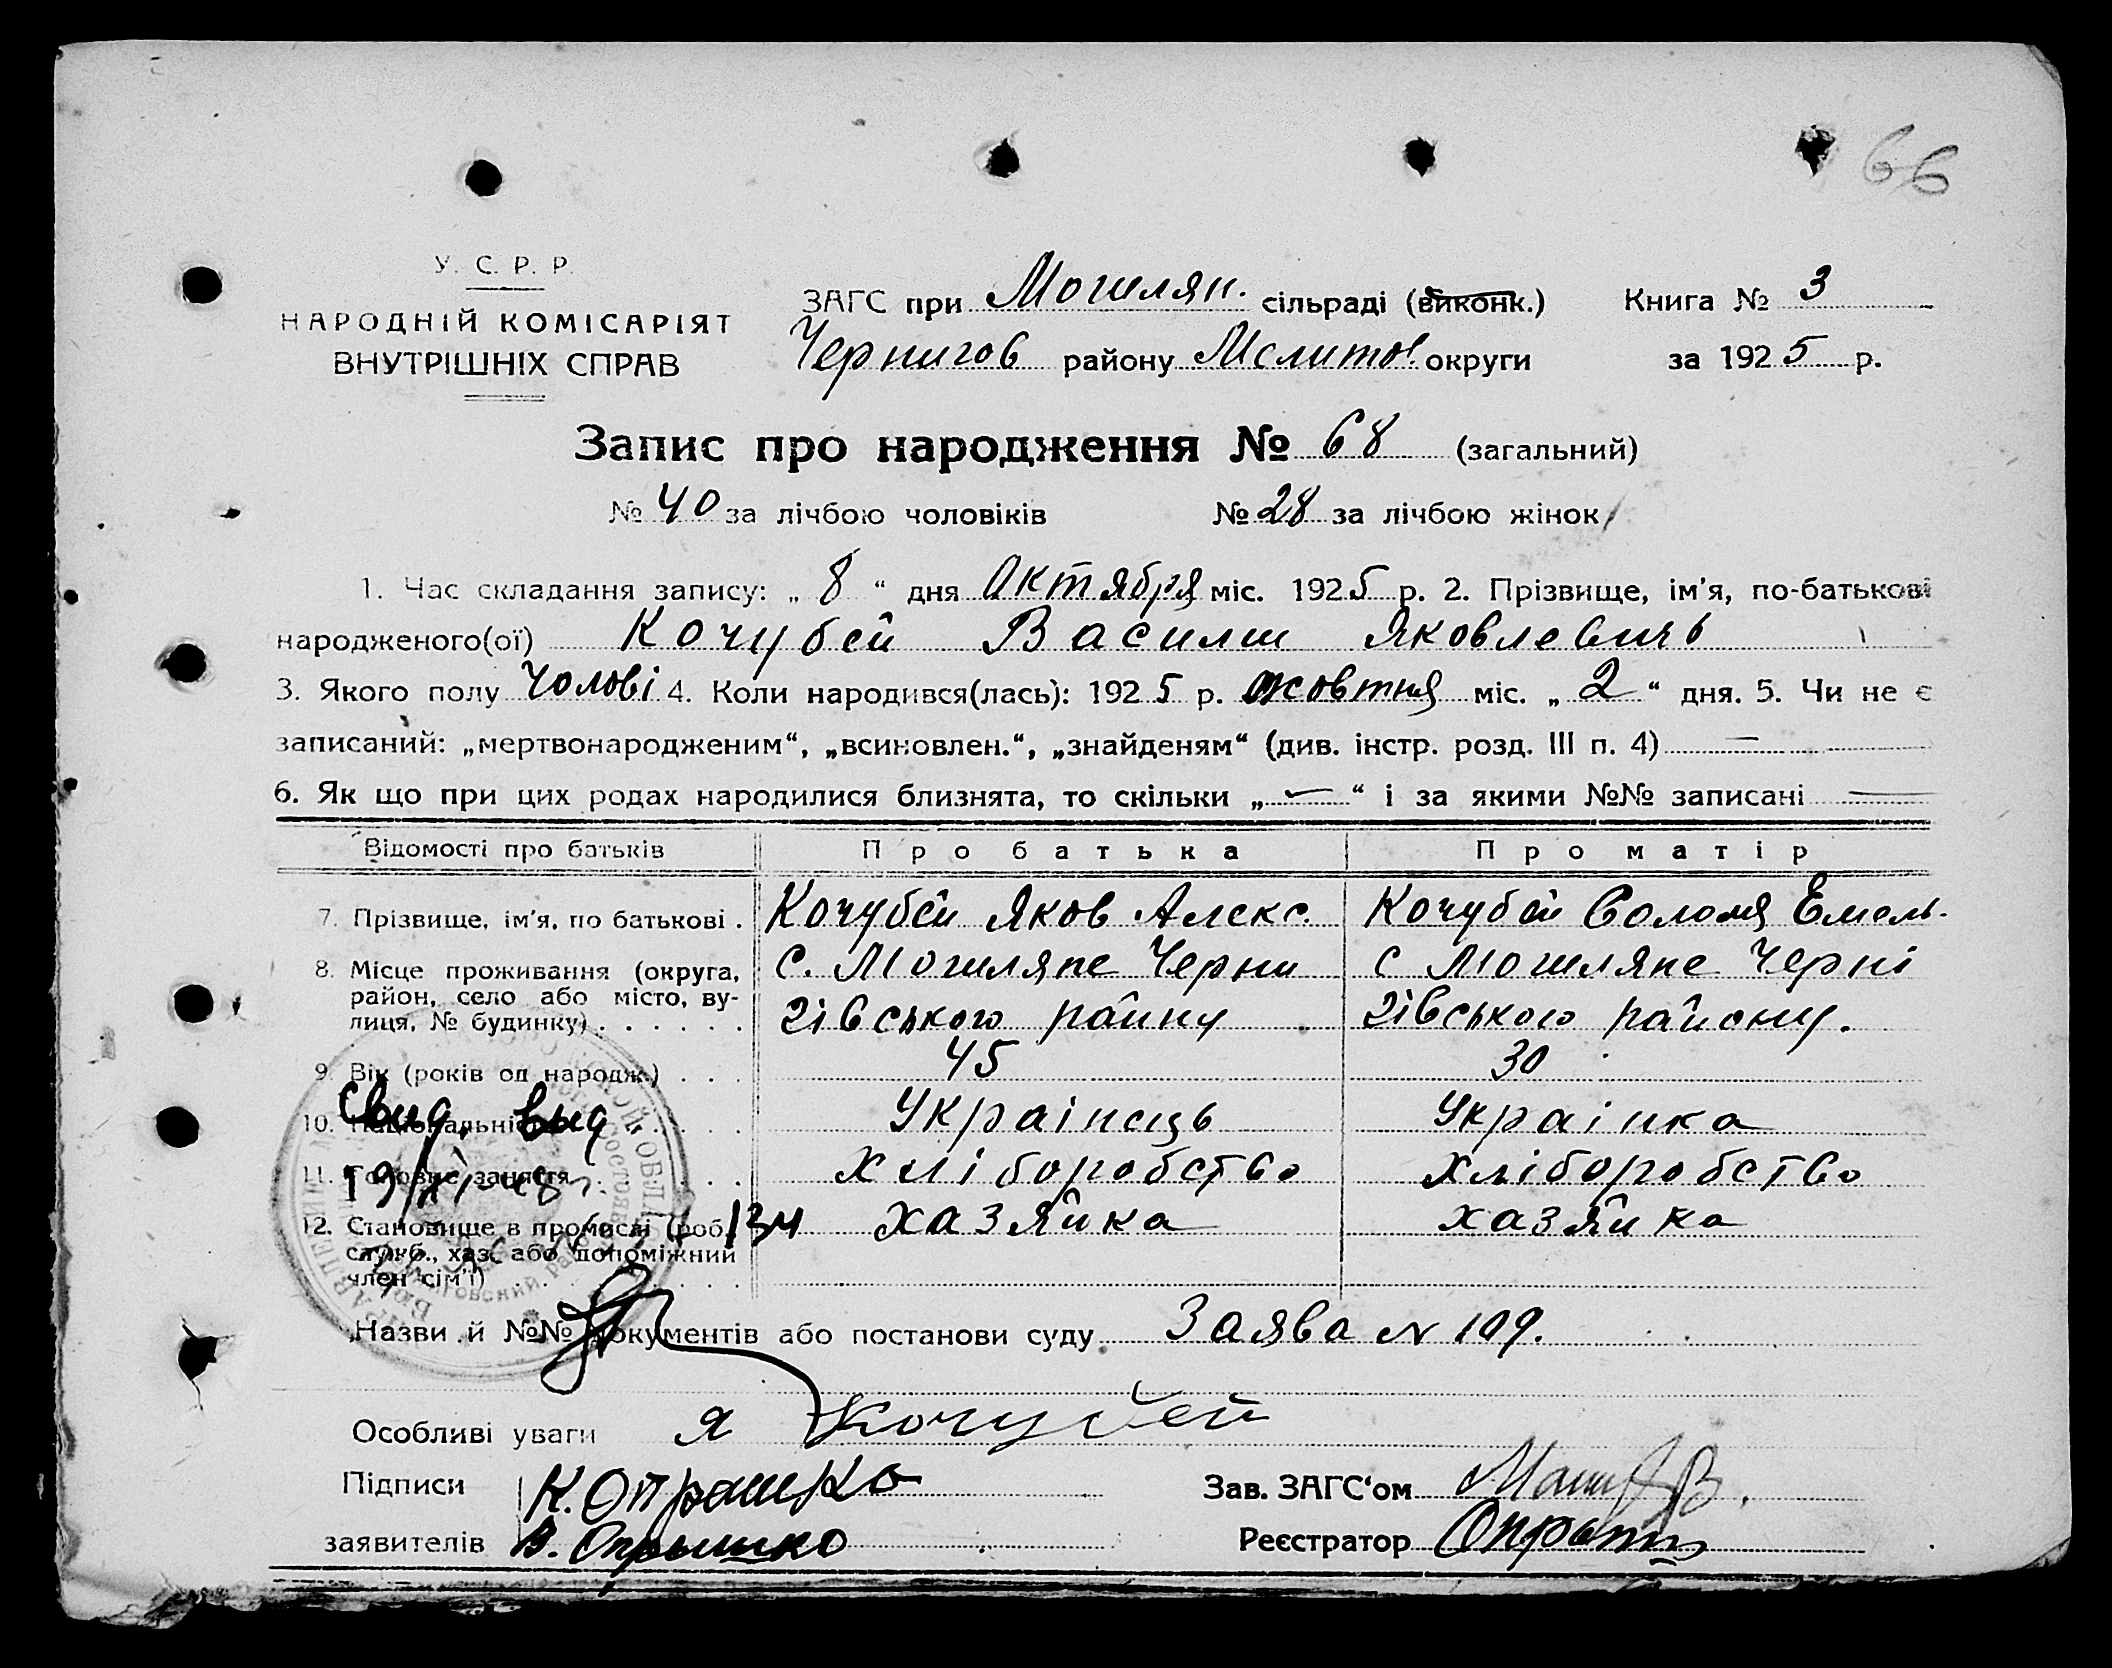 66
У. С. Р. Р.
НАРОДНІЙ КОМІСАРІЯТ
ВНУТРІШНІХ СПРАВ
ЗАГС при Могилян. сільраді (виконк.) Книга № 3
Чернигов району Мелитоп. округи за 1925 р.
Запис про народження № 68 (загальний)
№ 40 за лічбою чоловіків № 28 за лічбою жінок
1. Час складання запису: „ 8 “ дня Октября міс. 1925 р. 2. Прізвище, ім'я, по-батькові
народженого(ої) Кочубей Василий Яковлевичь
3. Якого полу Чолові 4. Коли народився(лась): 1925 р. жовтня міс. „ 2 “ дня. 5. Чи не є
записаний: „мертвонародженим“, „всиновлен.“, „знайденям“ (див. інстр. розд. III п. 4) —
6. Як що при цих родах народилися близнята, то скільки „ — “ і за якими №№ записані —
Відомості про батьків Про батька Про матір
7. Прізвище, ім'я, по батькові . Кочубей Яков Алекс. Кочубей Соломя Емель.
8. Місце проживання (округа, район, село або місто, вулиця, № будинку) . . . . . . с. Могиляне Черни с Могиляне Черні
гівського райну гівського району.
9. Вік (років од народж.) . . . 45 30
10. Національність . . . . Українець Українка
11. Головне заняття . . . . Хліборобство Хліборобство
12. Становище в промислі (роб., служб., хаз. або допоміжний член сім'ї) . . . . хазяйка хазяйка
Свид. выд
134
Назви й №№ документів або постанови суду Заява № 109.
Особливі уваги я Кочубей
Підписи К. Опрышко Зав. ЗАГС'ом
заявителів В. Опрышко Реєстратор